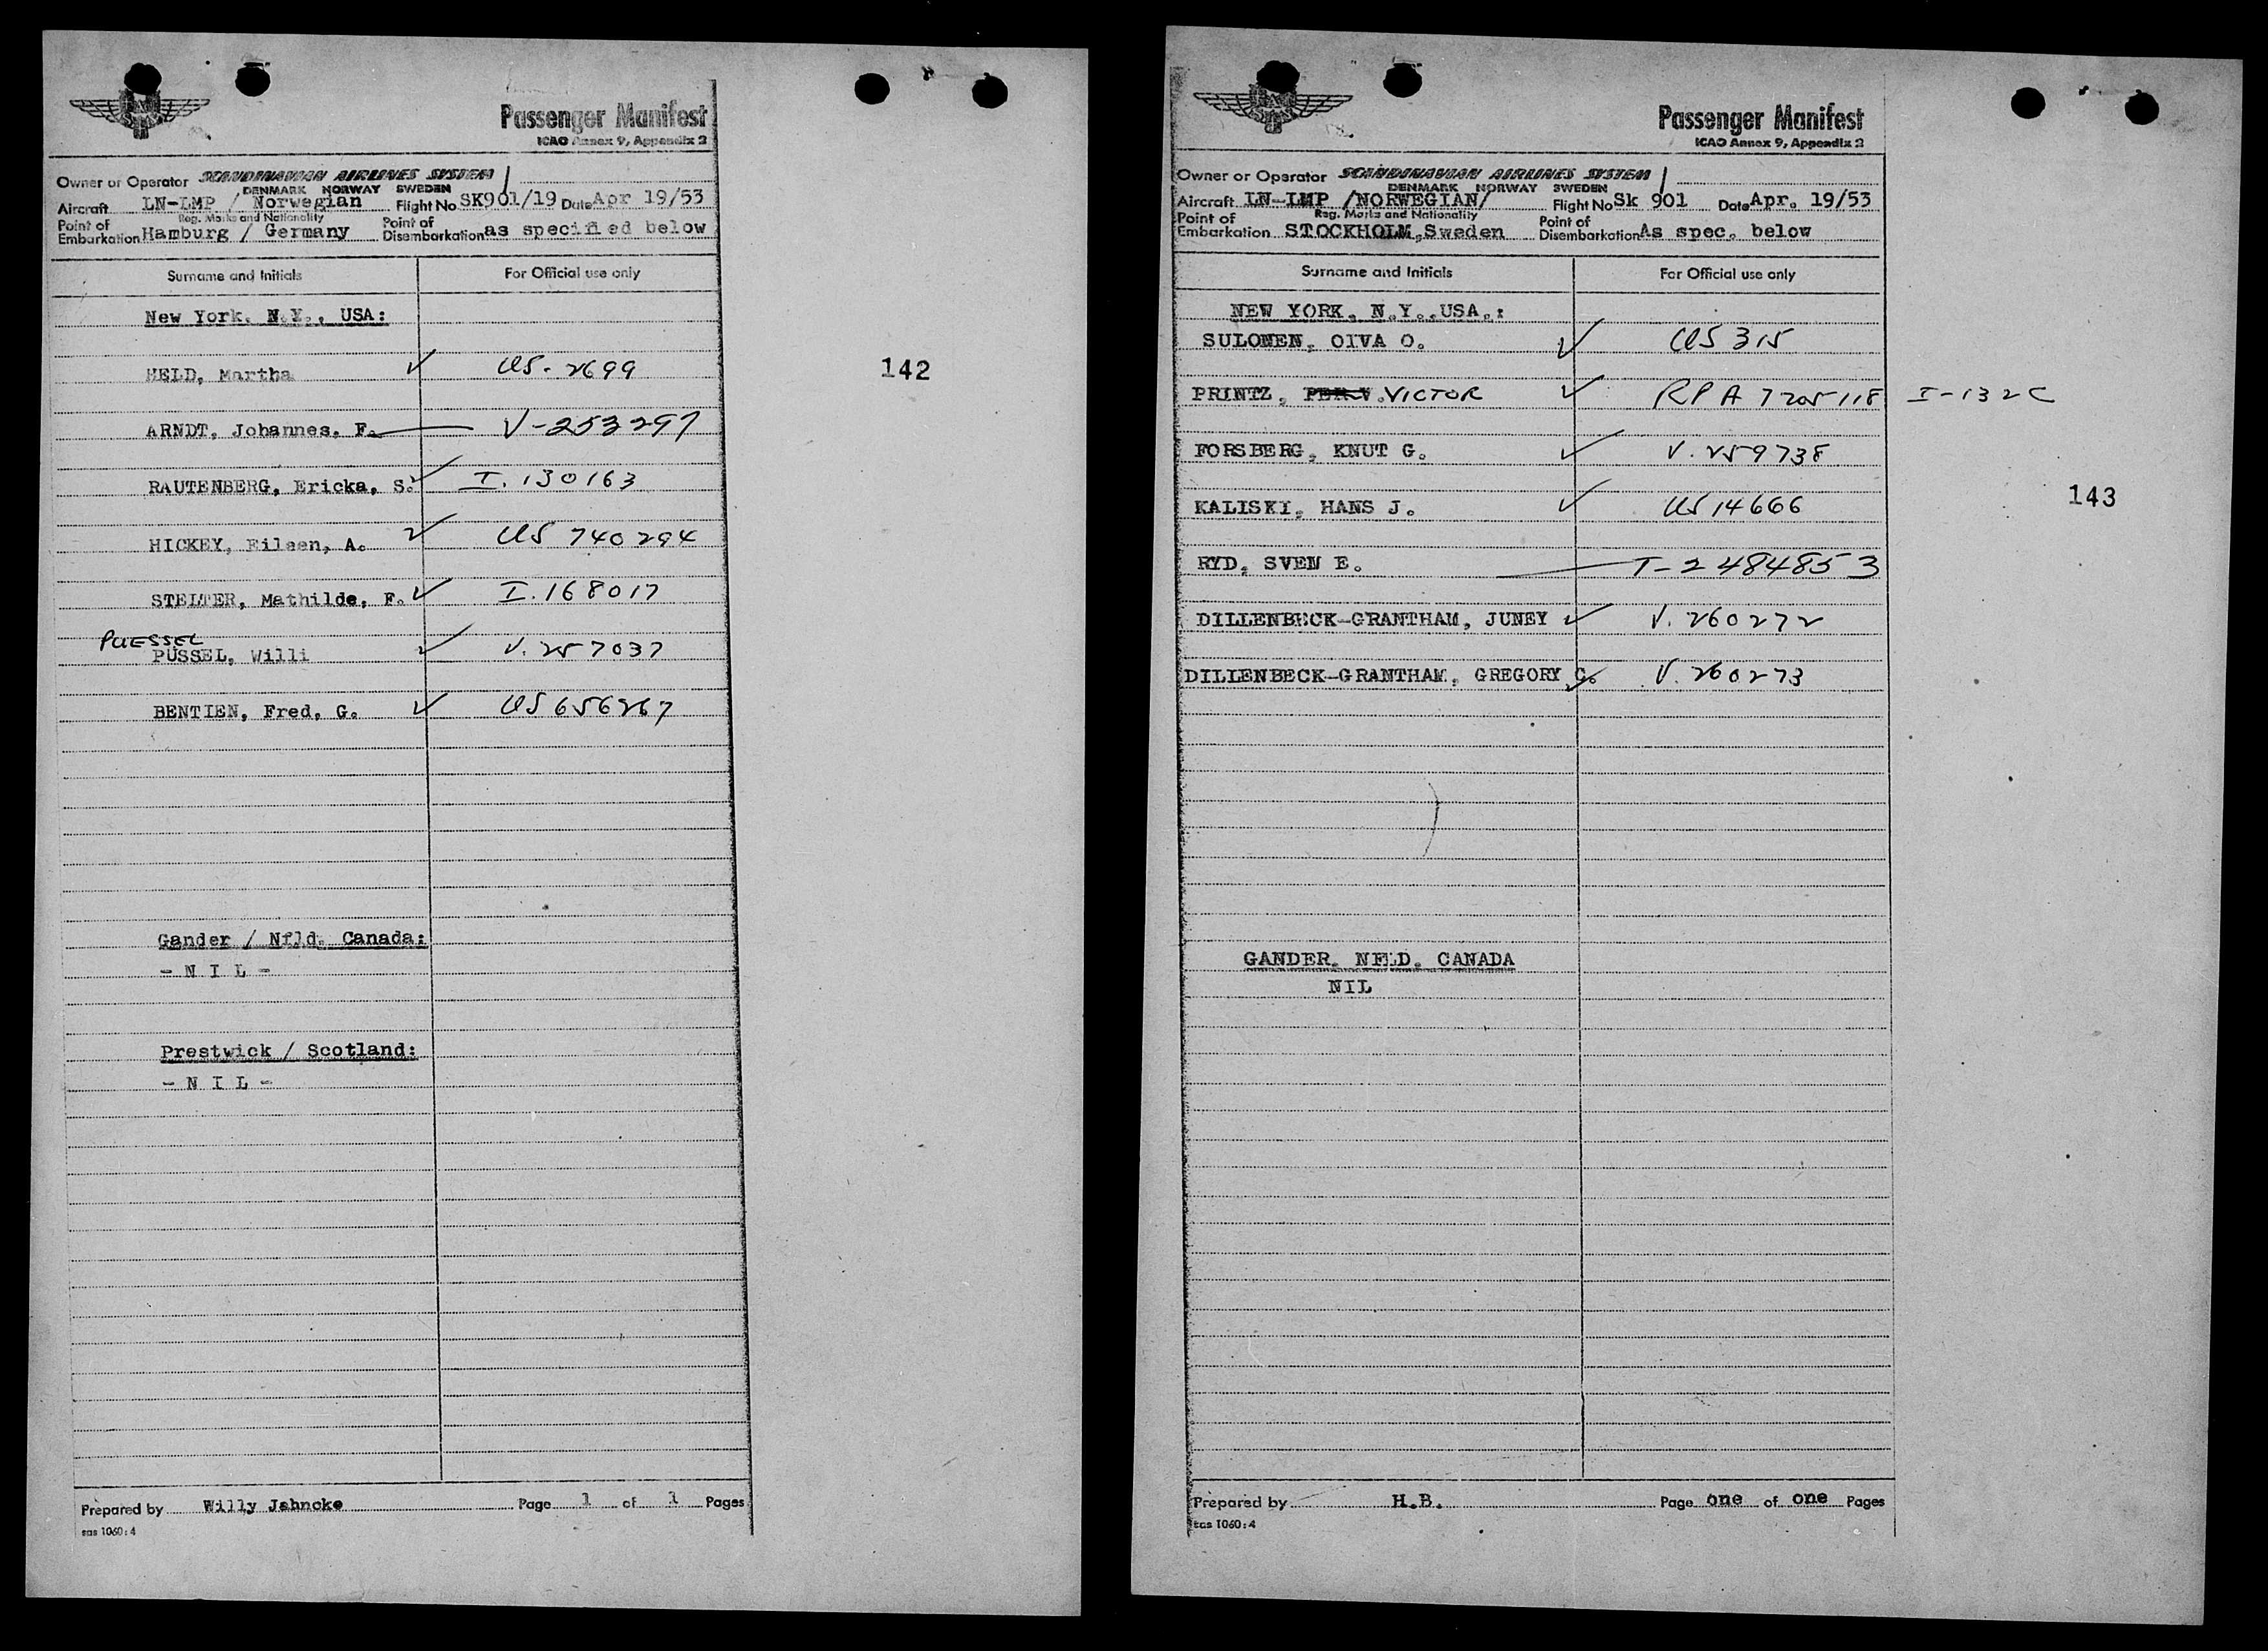 Passenger Manifest
ICAO Annex 9, Appendix 2
Owner or Operator SCANDINAVIAN AIRLINES SYSTEM
DENMARK NORWAY SWEDEN
Aircraft LN-LMP / Norwegian Flight No SK901/19 Date Apr 19/53
Reg. Marks and Nationality
Point of Embarkation Hamburg / Germany Point of Disembarkation as specified below
Surname and Initials For Official use only
New York, N.Y., USA:
HELD, Martha ✓ US-2699
142
ARNDT, Johannes, F. V-253297
RAUTENBERG, Ericka, S. ✓ I.130163
HICKEY, Eileen, A. ✓ US 740294
STELTER, Mathilde, F. ✓ I.168017
PUESSEL
PÜSSEL, Willi ✓ V.257037
BENTIEN, Fred, G. ✓ US 656267
Gander / Nfld. Canada:
- N I L -
Prestwick / Scotland:
- N I L -
Prepared by Willy Jahncke Page 1 of 1 Pages
sas 1060:4
Passenger Manifest
ICAO Annex 9, Appendix 2
Owner or Operator SCANDINAVIAN AIRLINES SYSTEM
DENMARK NORWAY SWEDEN
Aircraft LN-LMP /NORWEGIAN/ Flight No Sk 901 Date Apr. 19/53
Reg. Marks and Nationality
Point of Embarkation STOCKHOLM, Sweden Point of Disembarkation As spec. below
Surname and Initials For Official use only
NEW YORK, N.Y., USA.:
SULONEN, OIVA O. ✓ US 315
PRINTZ, PER V. VICTOR ✓ RPA 7205118 I-132C
FORSBERG, KNUT G. ✓ V.259738
KALISKI, HANS J. ✓ US 14666
143
RYD, SVEN E. T-2484853
DILLENBECK-GRANTHAM, JUNEY ✓ V.260272
DILLENBECK-GRANTHAM, GREGORY C. ✓ V.260273
GANDER, NFLD, CANADA
NIL
Prepared by H.B. Page one of one Pages
sas 1060:4